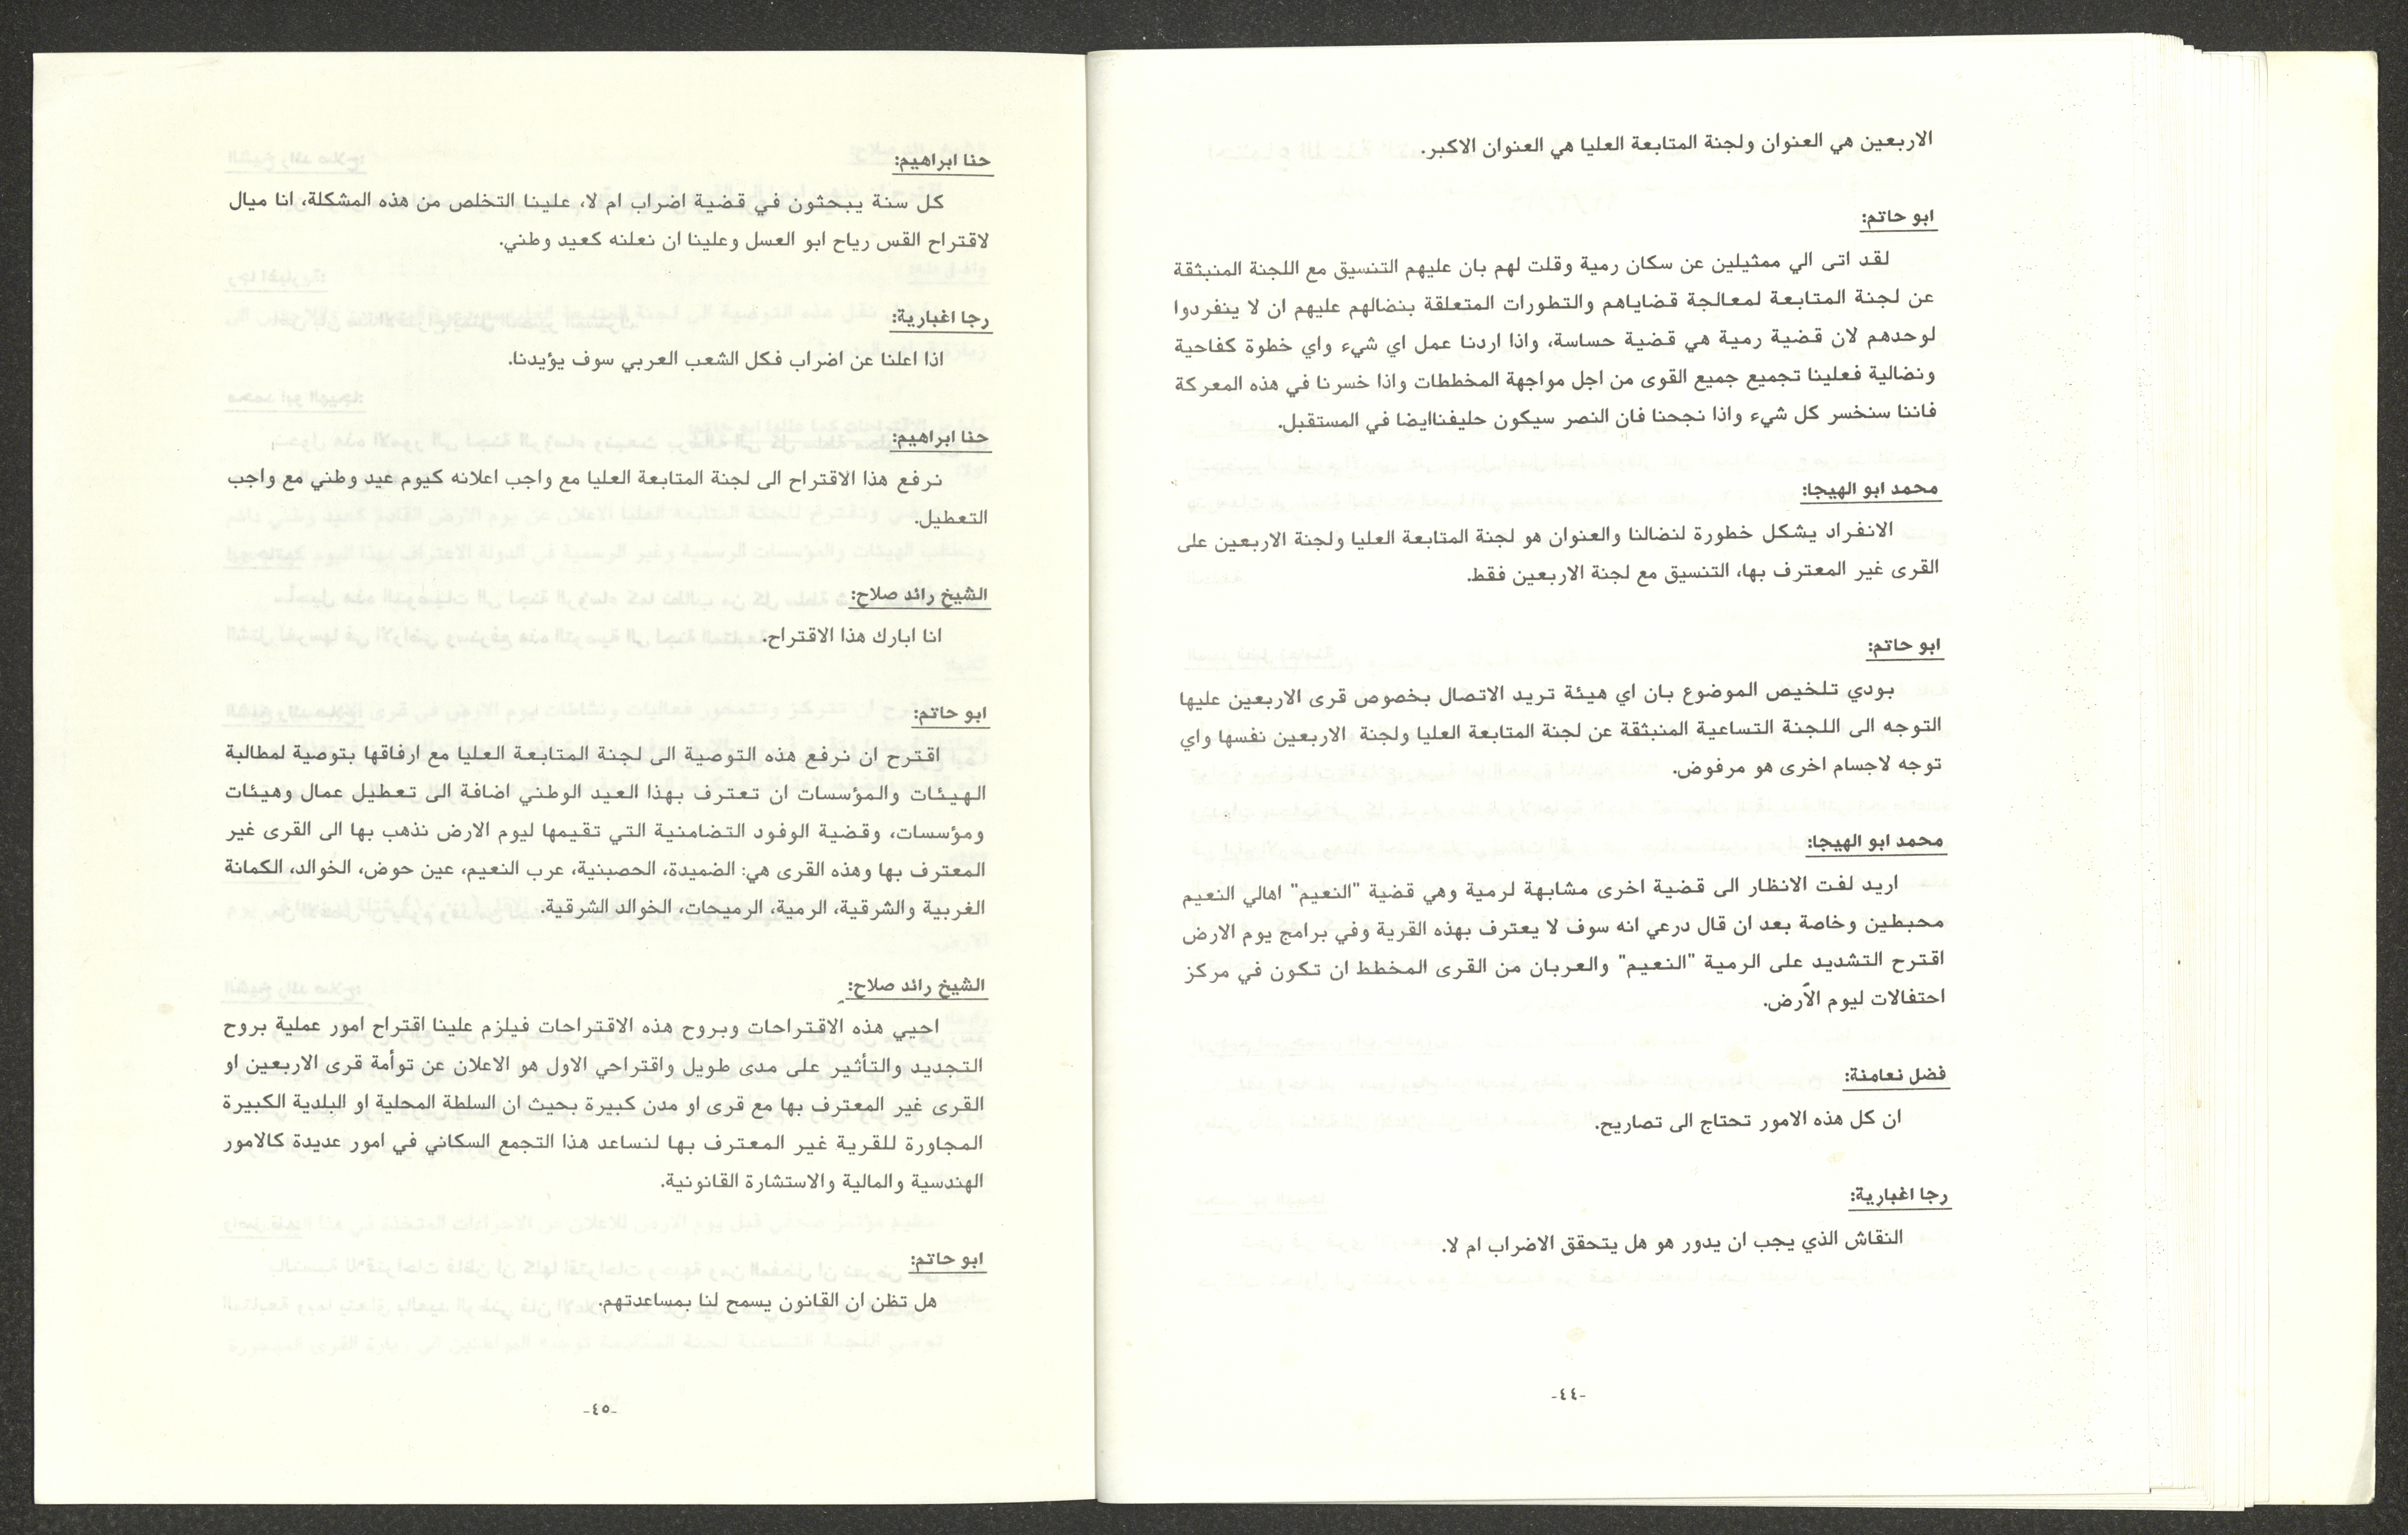 الاربعين هي العنوان ولجنة المتابعة العليا هي العنوان الاكبر.
ابو حاتم:
لقد اتى الي ممثيلين عن سكان رمية وقلت لهم بان عليهم التنسيق مع اللجنة المنبثقة
عن لجنة المتابعة لمعالجة قضاياهم والتطورات المتعلقة بنضالهم عليهم ان لا ينفردوا
لوحدهم لان قضية رمية هي قضية حساسة، واذا اردنا عمل اي شيء واي خطوة كفاحية
ونضالية فعلينا تجميع جميع القوى من اجل مواجهة المخططات واذا خسرنا في هذه المعركة
فاننا سنخسر كل شيء واذا نجحنا فان النصر سيكون حليفناايضا في المستقبل.
محمد ابو الهيجا:
الانفراد يشكل خطورة لنضالنا والعنوان هو لجنة المتابعة العليا ولجنة الاربعين على
القرى غير المعترف بها، التنسيق مع لجنة الاربعين فقط.
ابو حاتم:
بودي تلخيص الموضوع بان اي هيئة تريد الاتصال بخصوص قرى الاربعين عليها
التوجه الى اللجنة التساعية المنبثقة عن لجنة المتابعة العليا ولجنة الاربعين نفسها واي
توجه لاجسام اخرى هو مرفوض.
محمد ابو الهيجا:
اريد لفت الانظار الى قضية اخرى مشابهة لرمية وهي قضية "النعيم" اهالي النعيم
محبطين وخاصة بعد ان قال درعي انه سوف لا يعترف بهذه القرية وفي برامج يوم الارض
اقترح التشديد على الرمية "النعيم" والعربان من القرى المخطط ان تكون في مركز
احتفالات ليوم الأرض.
فضل نعامنة:
ان كل هذه الامور تحتاج الى تصاريح.
رجا اغبارية:
النقاش الذي يجب ان يدور هو هل يتحقق الاضراب ام لا.
-٤٤-
حنا ابراهيم:
كل سنة يبحثون في قضية اضراب ام لا، علينا التخلص من هذه المشكلة، انا ميال
لاقتراح القس رياح ابو العسل وعلينا ان نعلنه كعيد وطني.
رجا اغبارية:
اذا اعلنا عن اضراب فكل الشعب العربي سوف يؤيدنا.
حنا ابراهيم:
نرفع هذا الاقتراح الى لجنة المتابعة العليا مع واجب اعلانه كيوم عيد وطني مع واجب
التعطيل.
الشيخ رائد صلاح:
انا ابارك هذا الاقتراح.
ابو حاتم:
اقترح ان نرفع هذه التوصية الى لجنة المتابعة العليا مع ارفاقها بتوصية لمطالبة
الهيئات والمؤسسات ان تعترف بهذا العيد الوطني اضافة الى تعطيل عمال وهيئات
ومؤسسات، وقضية الوفود التضامنية التي تقيمها ليوم الارض نذهب بها الى القرى غير
المعترف بها وهذه القرى هي: الضميدة، الحصبنية، عرب النعيم، عين حوض، الخوالد، الكمانة
الغربية والشرقية، الرمية، الرميحات، الخوالد الشرقية.
الشيخ رائد صلاح:
احيي هذه الاقتراحات وبروح هذه الاقتراحات فيلزم علينا اقتراح امور عملية بروح
التجديد والتأثير على مدى طويل واقتراحي الاول هو الاعلان عن توأمة قرى الاربعين او
القرى غير المعترف بها مع قرى او مدن كبيرة بحيث ان السلطة المحلية او البلدية الكبيرة
المجاورة للقرية غير المعترف بها لنساعد هذا التجمع السكاني في امور عديدة كالامور
الهندسية والمالية والاستشارة القانونية.
ابو حاتم:
هل تظن ان القانون يسمح لنا بمساعدتهم.
-٤٥-